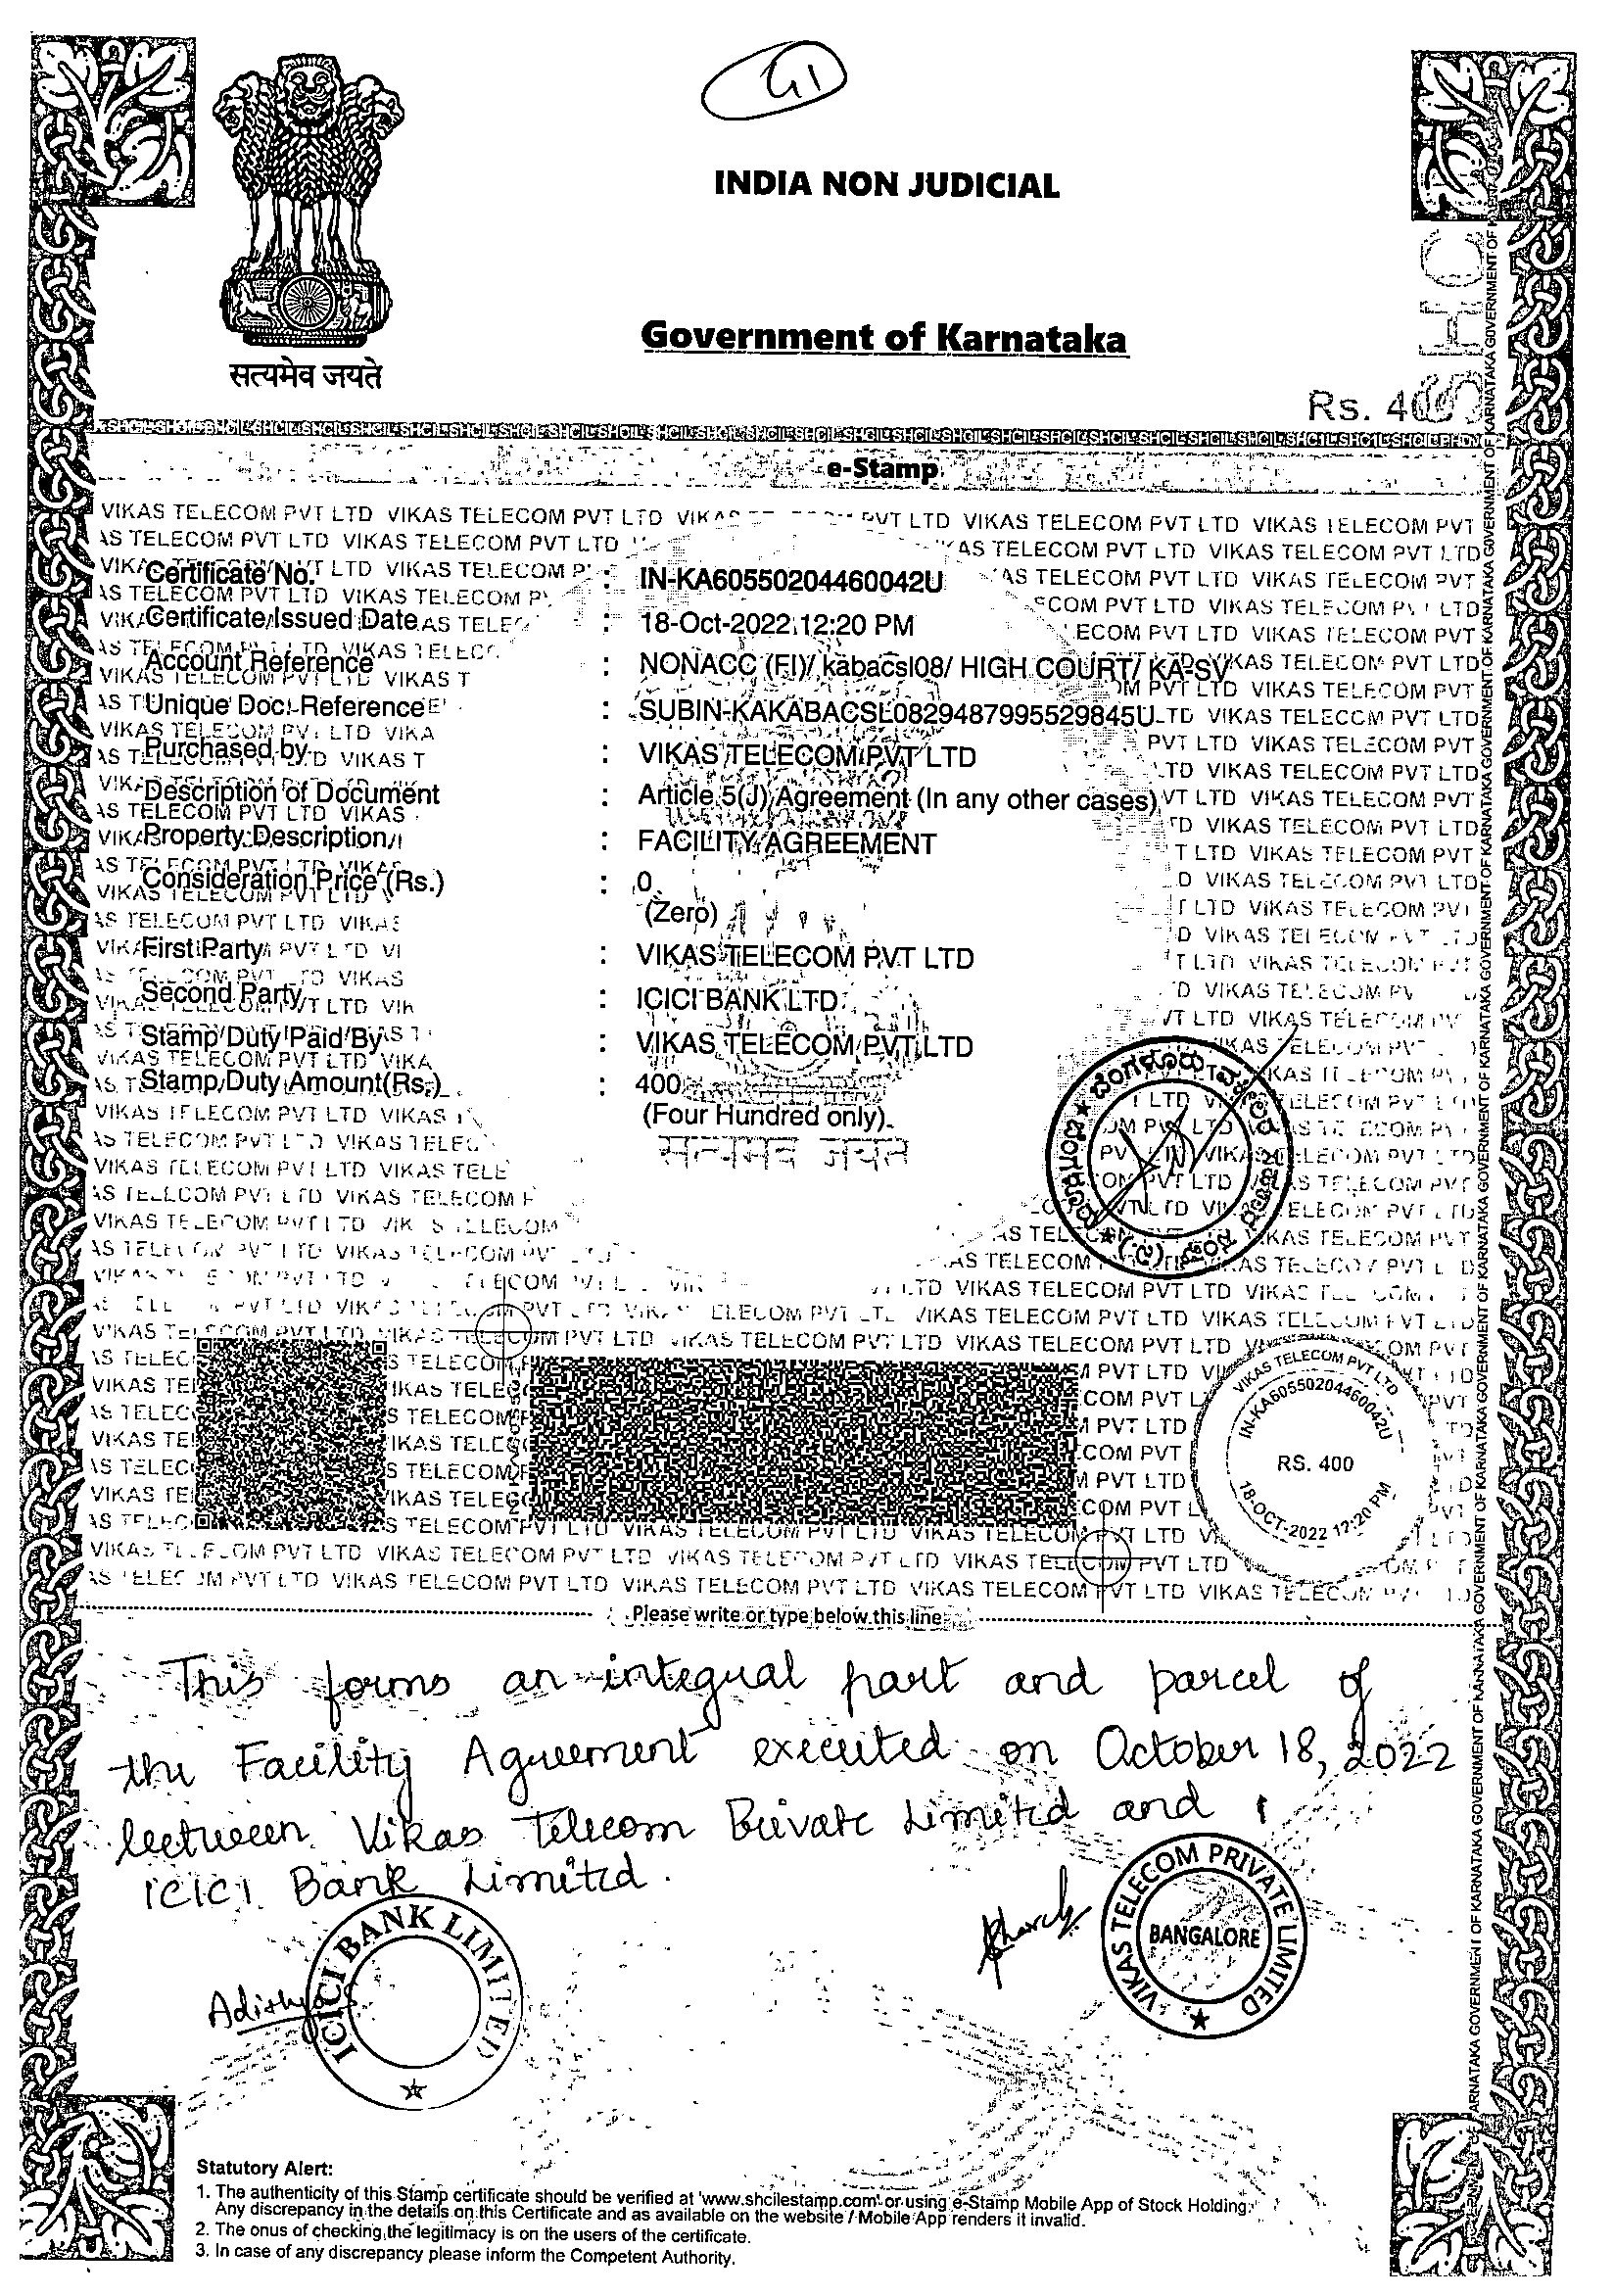 G1
INDIA NON JUDICIAL
Government of Karnataka
सत्यमेव जयते
Rs. 400
e-Stamp
Certificate No. : IN-KA60550204460042U
Certificate Issued Date : 18-Oct-2022 12:20 PM
Account Reference : NONACC (FI)/ kabacsl08/ HIGH COURT/ KA-SV
Unique Doc. Reference : SUBIN-KAKABACSL0829487995529845U
Purchased by : VIKAS TELECOM PVT LTD
Description of Document : Article 5(J) Agreement (In any other cases)
Property Description : FACILITY AGREEMENT
Consideration Price (Rs.) : 0
(Zero)
First Party : VIKAS TELECOM PVT LTD
Second Party : ICICI BANK LTD
Stamp Duty Paid By : VIKAS TELECOM PVT LTD
Stamp Duty Amount(Rs.) : 400
(Four Hundred only)
सत्यमेव जयते
VIKAS TELECOM PVT LTD
IN-KA60550204460042U
RS. 400
18-OCT-2022 12:20 PM
Please write or type below this line
This forms an integral part and parcel of
the Facility Agreement executed on October 18, 2022
between Vikas Telecom Private Limited and
ICICI Bank Limited.
ICICI BANK LIMITED
Adithya
VIKAS TELECOM PRIVATE LIMITED
BANGALORE
Statutory Alert:
1. The authenticity of this Stamp certificate should be verified at 'www.shcilestamp.com' or using e-Stamp Mobile App of Stock Holding.
Any discrepancy in the details on this Certificate and as available on the website / Mobile App renders it invalid.
2. The onus of checking the legitimacy is on the users of the certificate.
3. In case of any discrepancy please inform the Competent Authority.